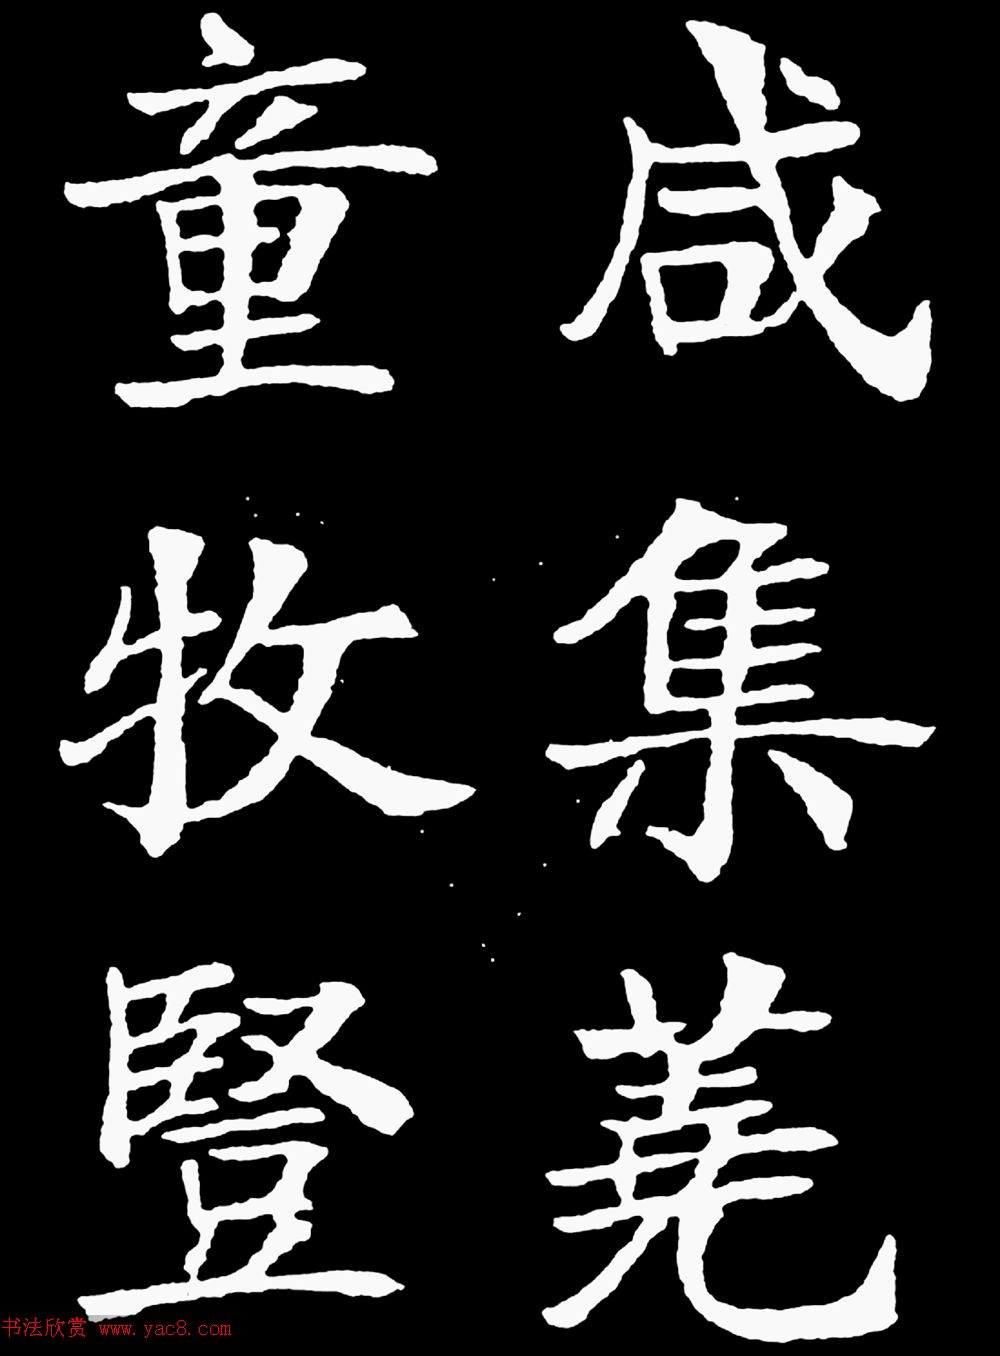 咸集蕘
童牧豎
书法欣赏 www.yac8.com